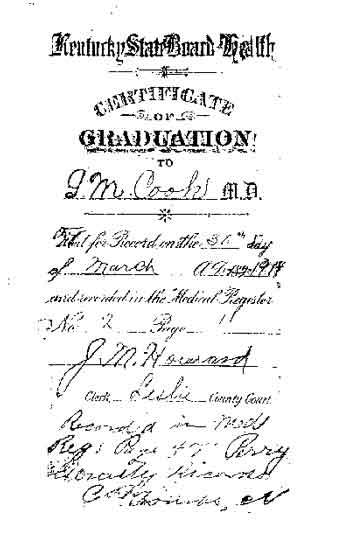 Kentucky State Board of Health
CERTIFICATE
OF
GRADUATION
TO
J. M. Cook M.D.
for Record on the 30th day
of March A.D. 1914
and recorded in the Medical Register
No. 2 Page 1
J. M. Howard
Clerk Leslie County Court
Recorded in Med
Reg: Page 47 Perry
County Records